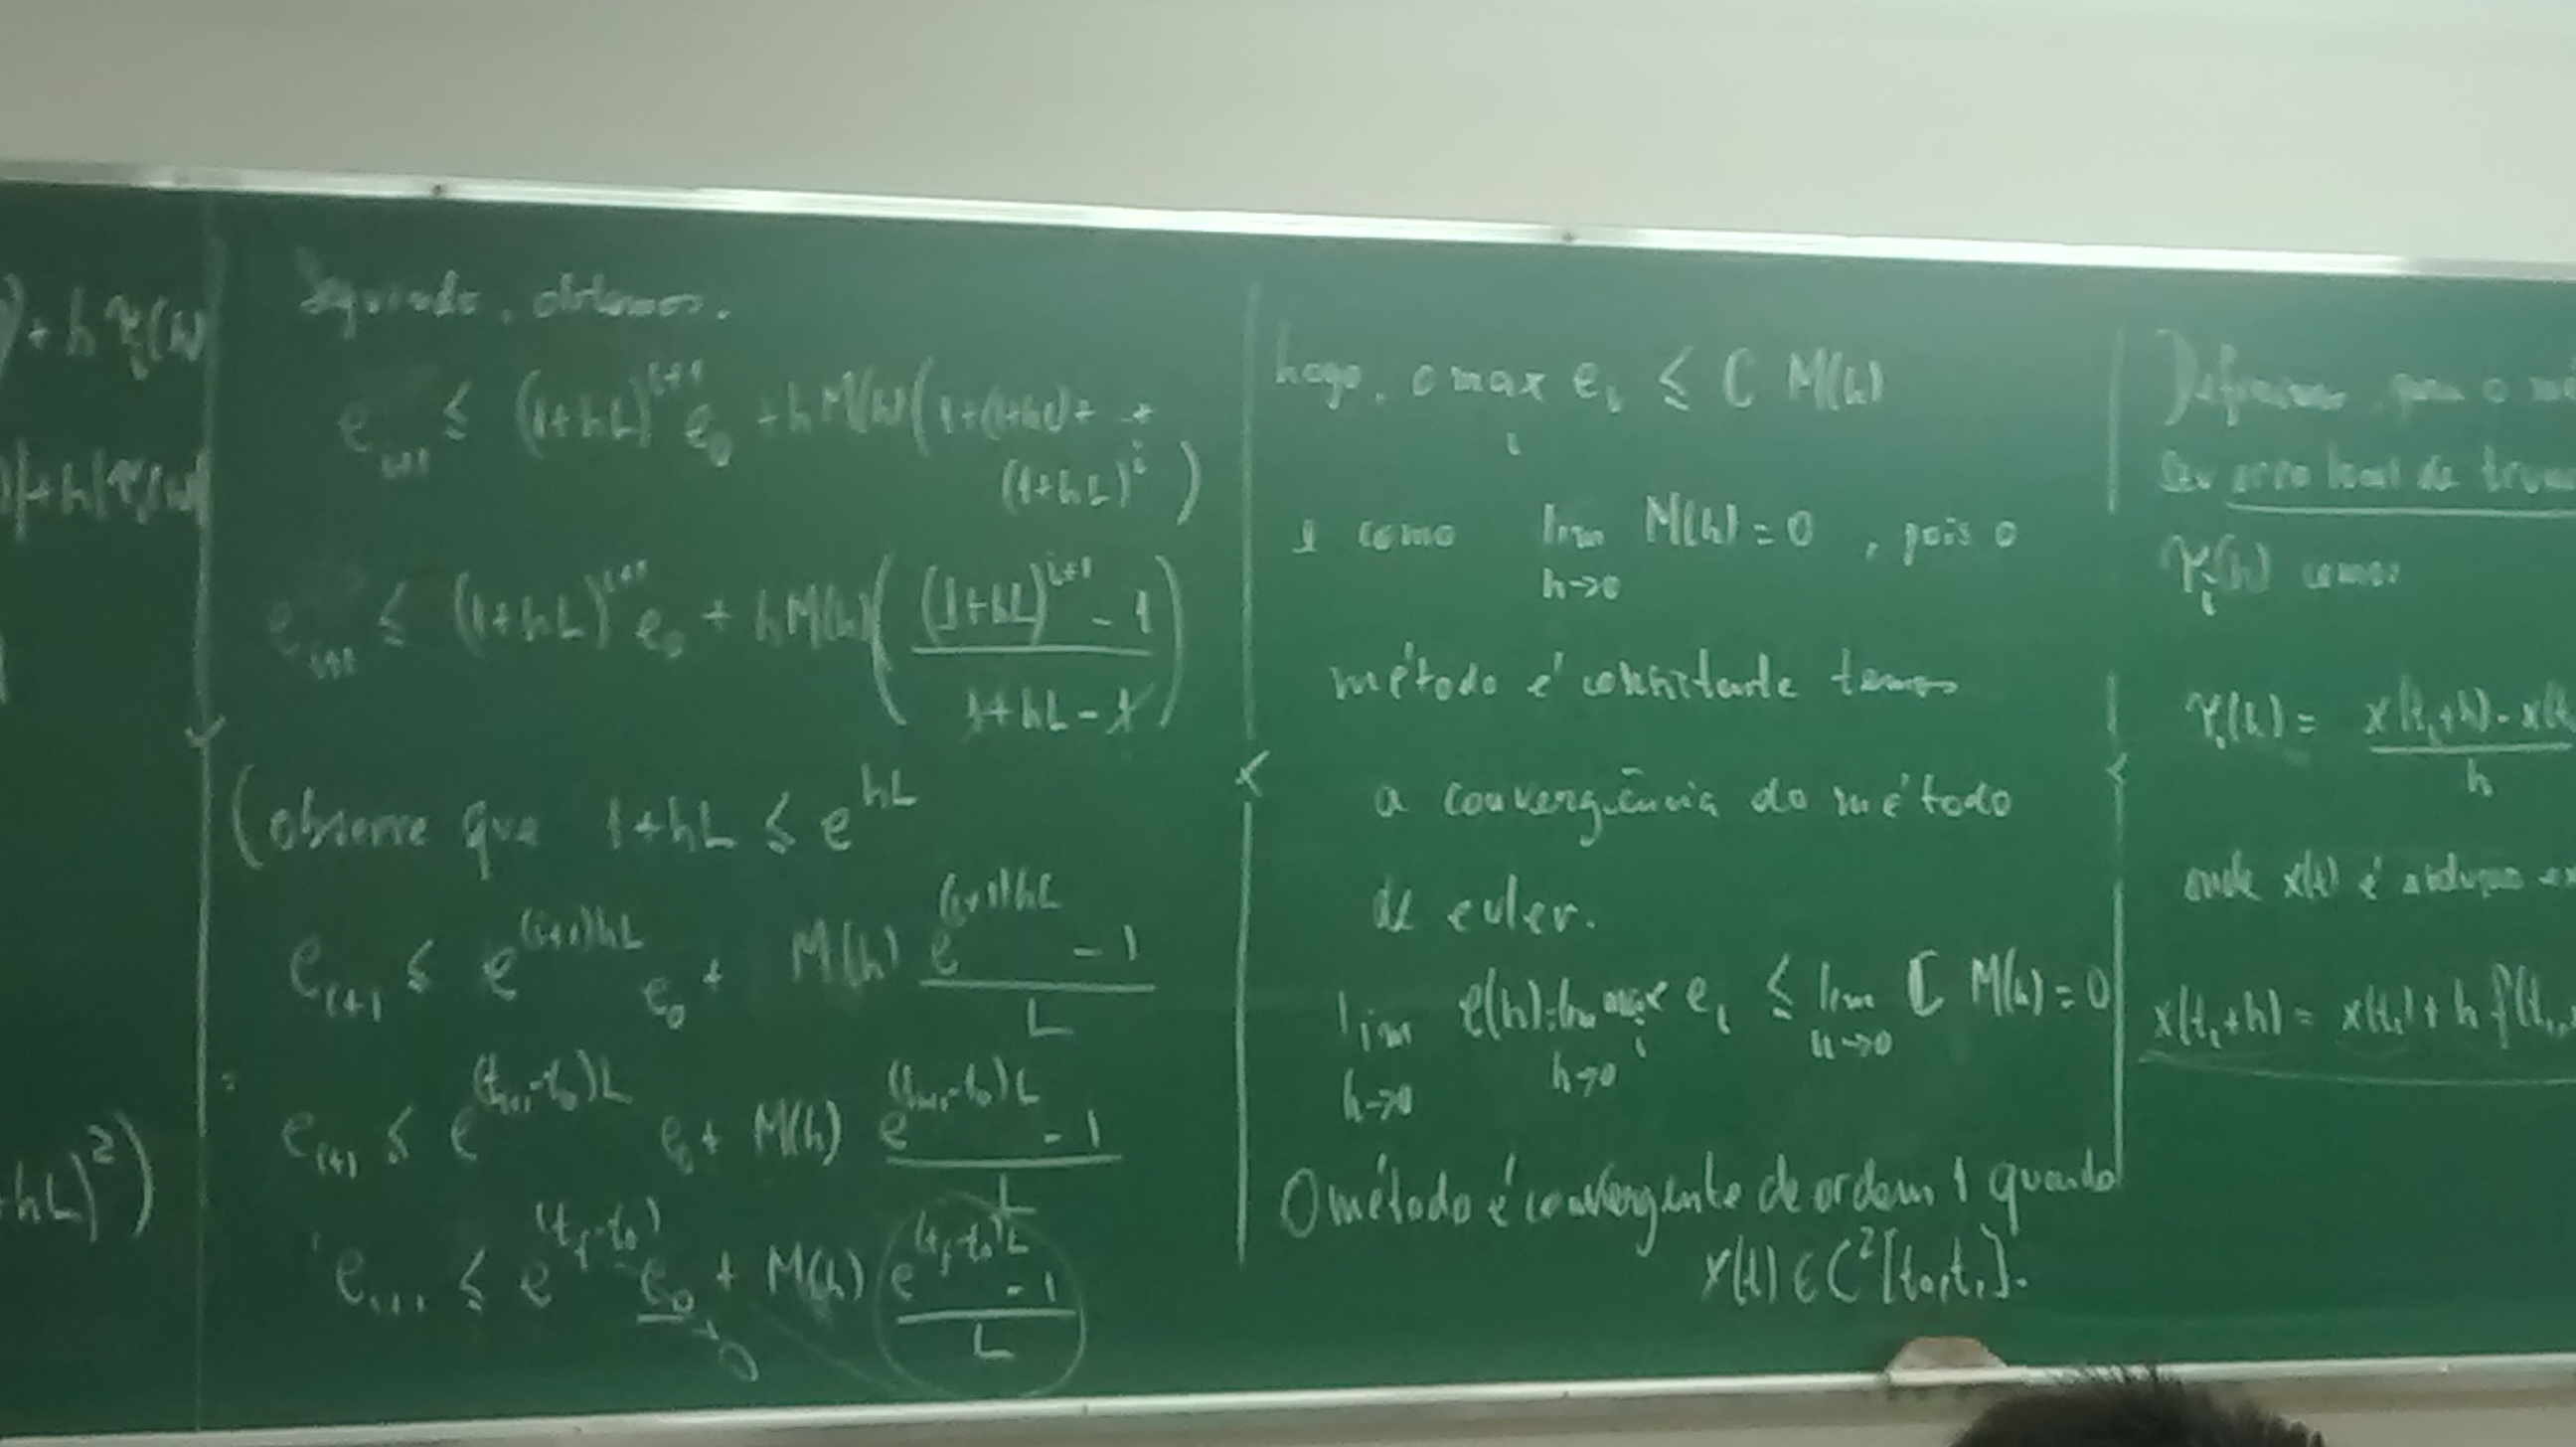 ) + h τ_i(h)
)| + h|τ_i(h)|
+hL)²)
Seguindo, obtemos.
e_{i+1} ≤ (1+hL)^{i+1} e_0 + h M(h) (1+(1+hL)+ … +
(1+hL)^i )
e_{i+1} ≤ (1+hL)^{i+1} e_0 + h M(h) ( ((1+hL)^{i+1} - 1) / (1+hL-1) )
(observe que 1+hL ≤ e^{hL}
e_{i+1} ≤ e^{(i+1)hL} e_0 + M(h) (e^{(i+1)hL} - 1) / L
e_{i+1} ≤ e^{(t_{i+1}-t_0)L} e_0 + M(h) (e^{(t_{i+1}-t_0)L} - 1) / L
e_{i+1} ≤ e^{(t_f-t_0)} e_0 + M(h) (e^{(t_f-t_0)L} - 1) / L
→0
Logo, o max_i e_i ≤ C M(h)
e como lim_{h→0} M(h) = 0 , pois o
método é consistente temos
a convergência do método
de euler.
lim_{h→0} e(h) = lim_{h→0} max_i e_i ≤ lim_{h→0} C M(h) = 0
O método é convergente de ordem 1 quando
x(t) ∈ C²[t_0, t_f].
Definimos, para o
seu erro local de trun
τ_i(h) como:
τ_i(h) = x(t_i+h) - x(t / h
onde x(t) é solução ex
x(t_i+h) = x(t_i) + h f(t_i,